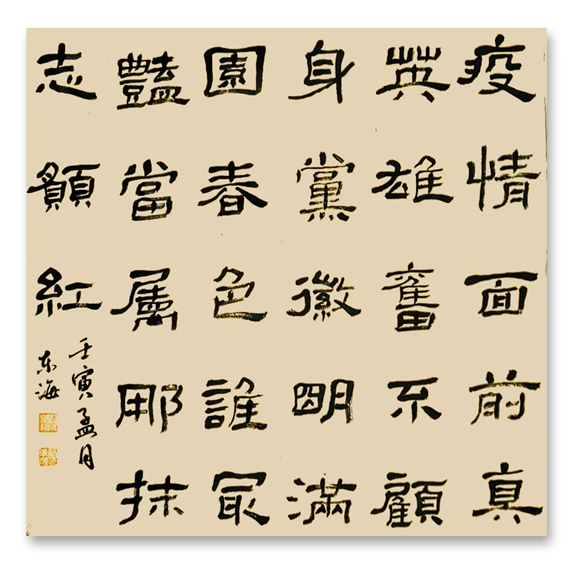 疫情面前真
英雄奮不顧
身黨徽明滿
園春色誰冣
豔當屬那抹
志願紅
壬寅孟月
东海